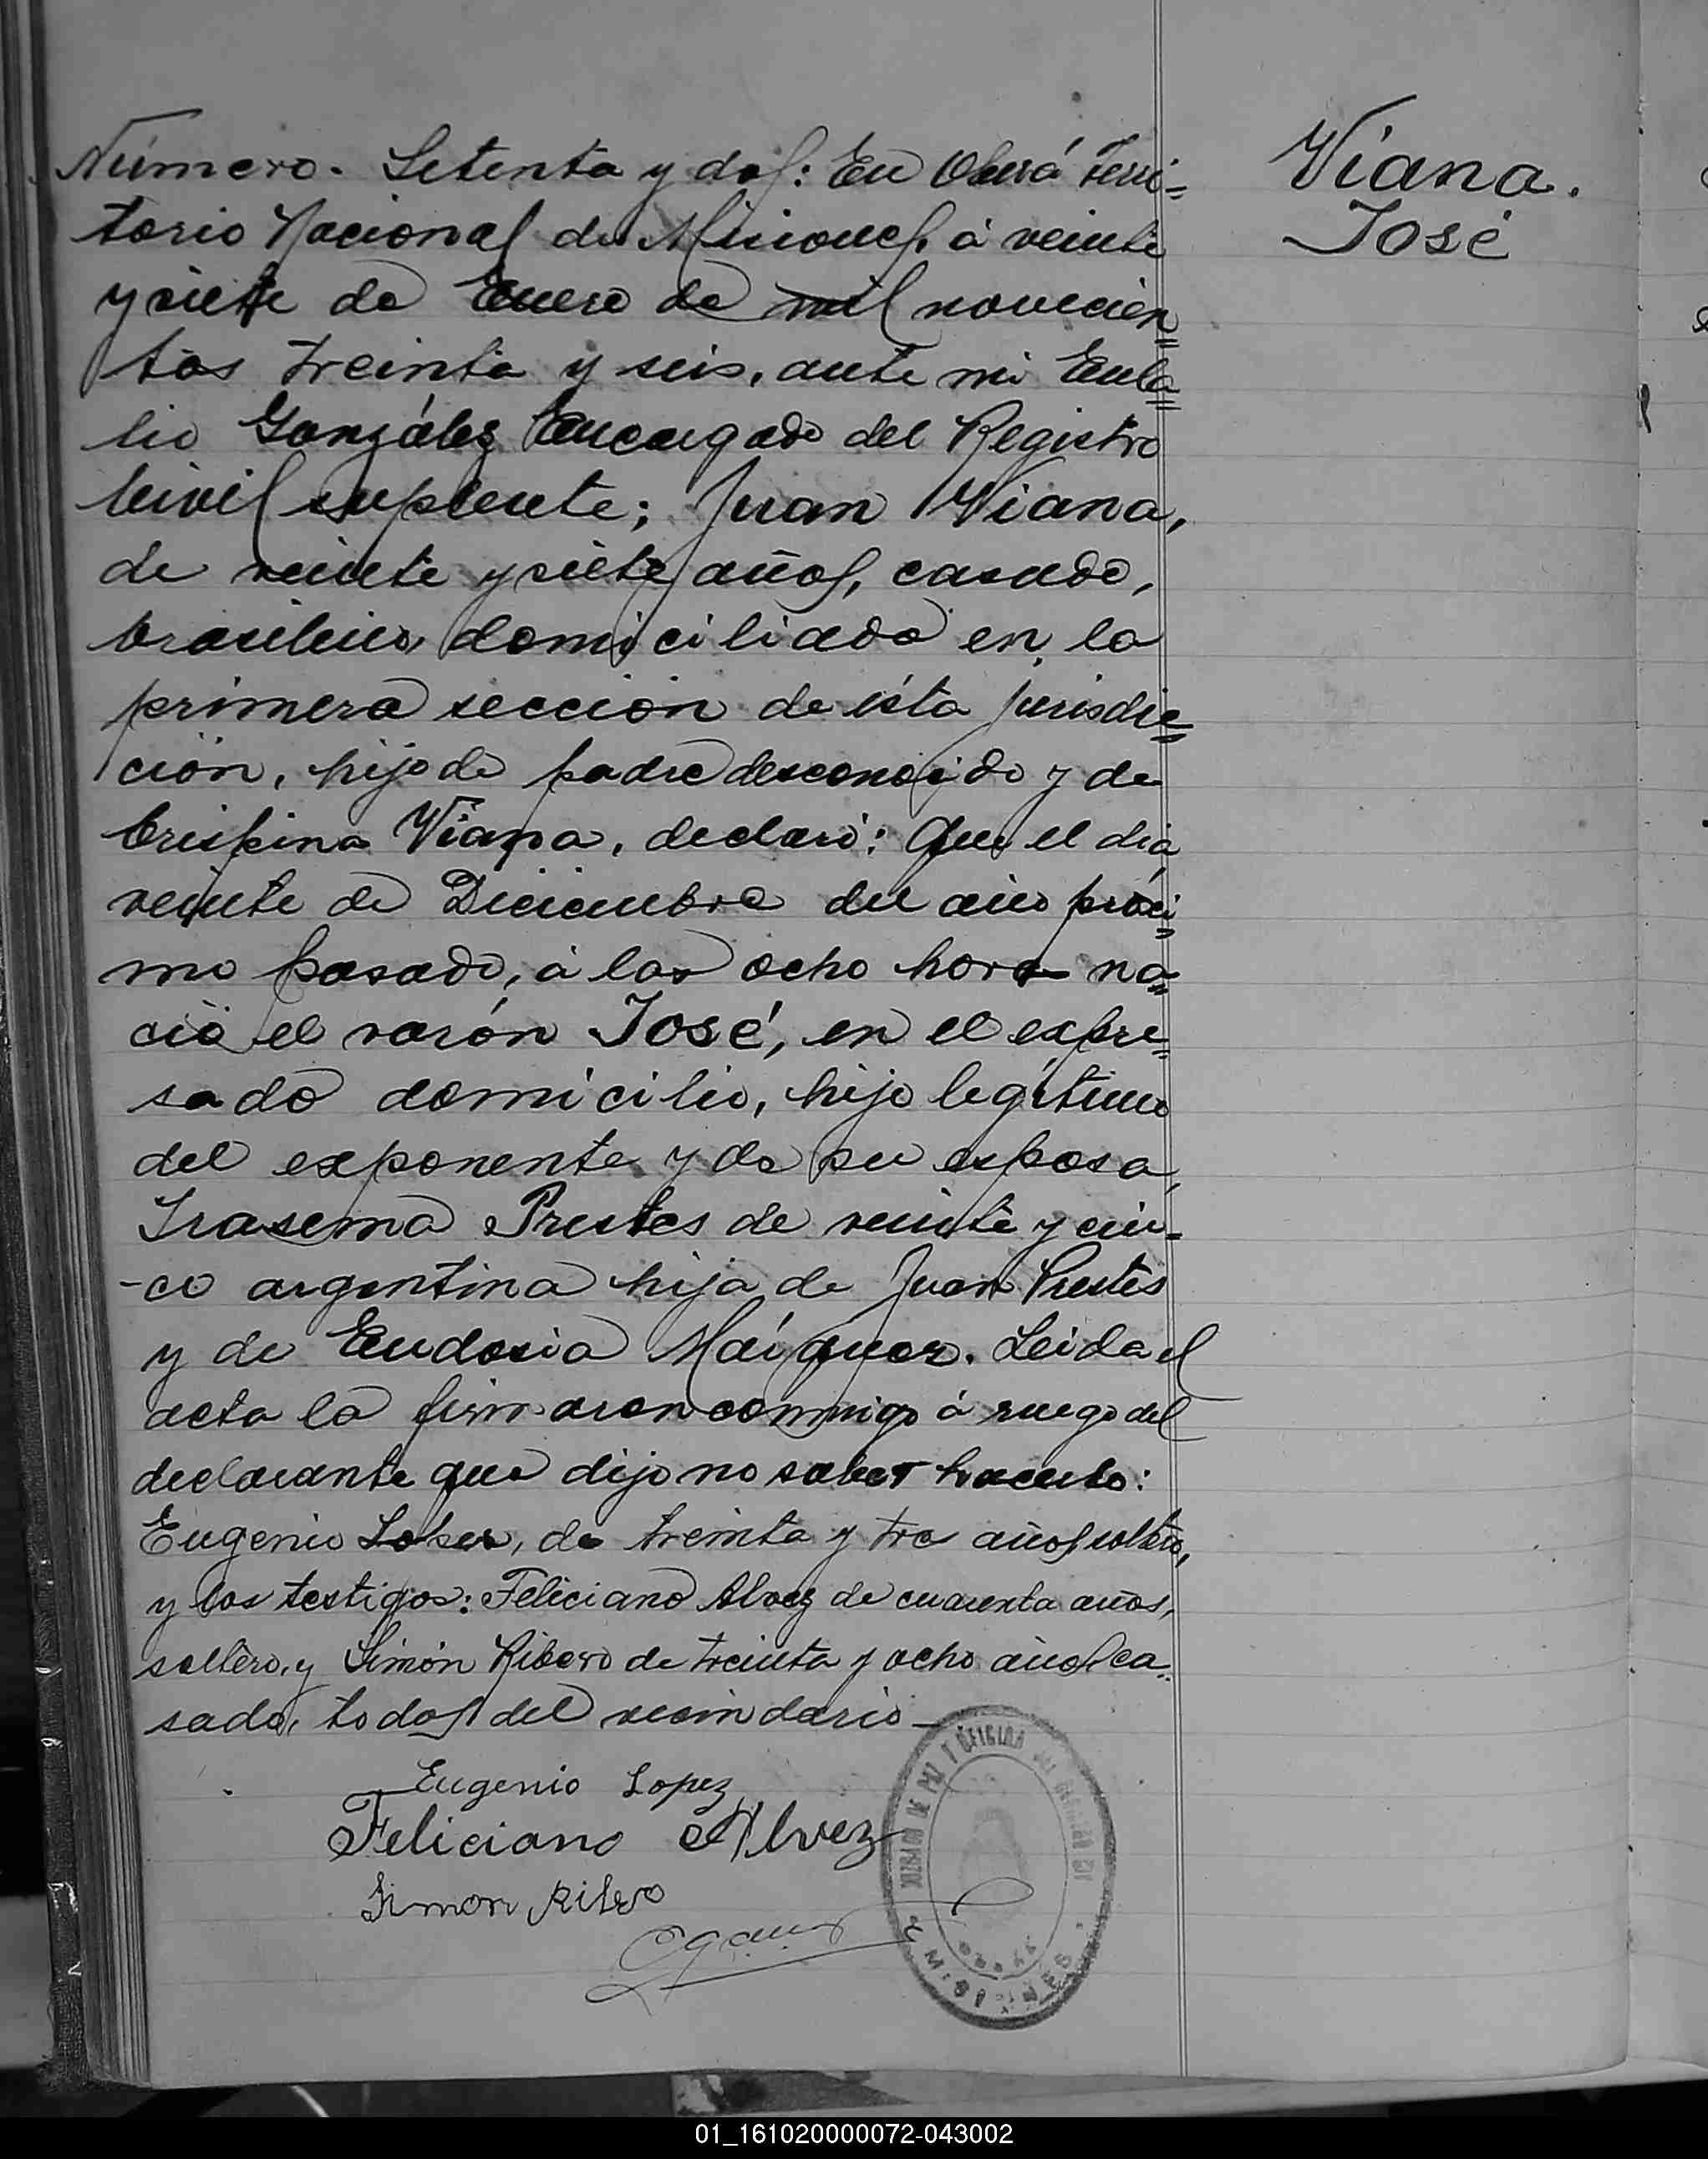 Número. Setenta y dos: En Oberá Terri=
torio Nacional de Misiones, á veinte
y siete de Enero de mil novecien=
tos treinta y seis, ante mi Eula=
lio González Encargado del Registro
Civil suplente; Juan Viana,
de veinte y siete años, casado,
brasilero, domiciliado en la
primera sección de ésta jurisdic=
ción, hijo de padre desconocido y de
Crispina Viana, declaró: Que el dia
veinte de Diciembre del año próci=
mo pasado, á las ocho horas na=
ció el varón José, en el expre=
sado domicilio, hijo legítimo
del exponente y de su esposa,
Irasema Prestes de veinte y cin-
-co argentina hija de Juan Prestes
y de Eudosia. Leida el
acta la firmaron conmigo á ruego del
declarante que dijo no saber hacerlo:
Eugenio Lopez, de treinta y tres años soltero,
y los testigos: Feliciano Alvez de cuarenta años,
soltero, y Simón Ribero de treinta y ocho años ca=
sado, todos del vecindario—
Viana.
José
Eugenio Lopez
Feliciano Alvez
Simon Ribero
JUZGADO DE PAZ Y OFICINA DEL REGISTRO CIVIL
MISIONES
01_161020000072-043002